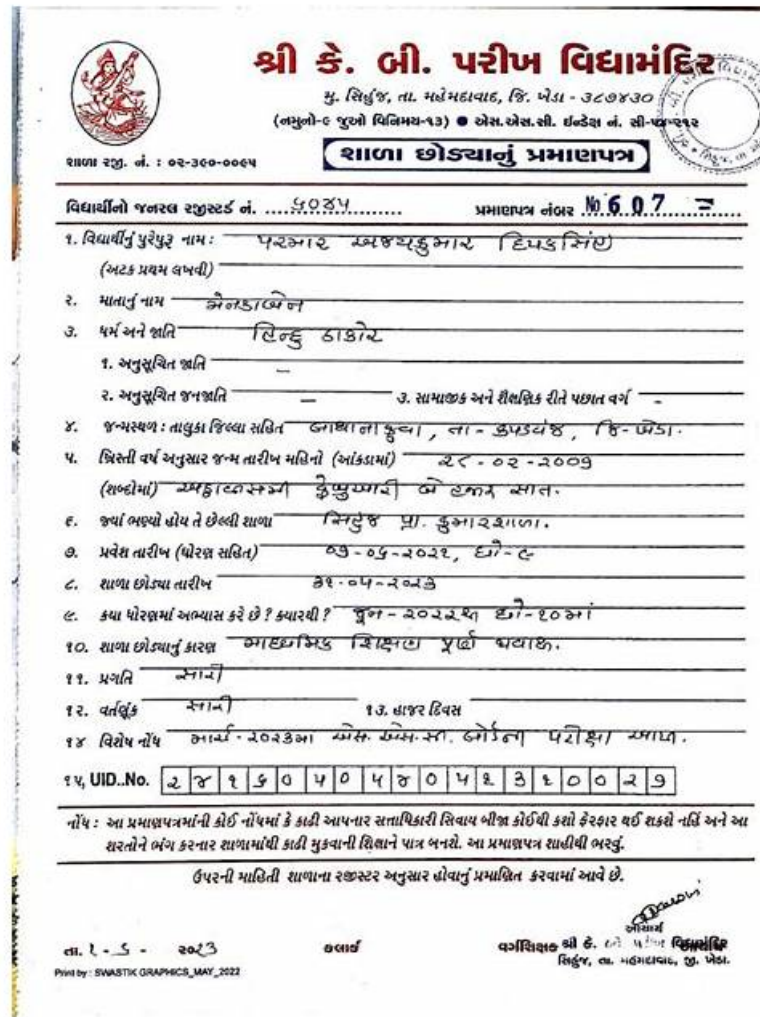 શ્રી કે. બી. પરીખ વિદ્યામંદિર
મુ. સિહુંજ, તા. મહેમદાવાદ, જિ. ખેડા - ૩૮૭૪૩૦
(નમુનો-૯ જુઓ વિનિમય-૧૩) ● એસ.એસ.સી. ઈન્ડેક્ષ નં. સી-૫૪-૨૧૨
શાળા રજી. નં. : ૦૨-૩૯૦-૦૦૯૫ શાળા છોડ્યાનું પ્રમાણપત્ર
વિદ્યાર્થીનો જનરલ રજીસ્ટર્ડ નં. ૬૦૪૫ પ્રમાણપત્ર નંબર No 607 =
૧. વિદ્યાર્થીનું પુરેપુરૂ નામ : પરમાર અજયકુમાર દિપકસિંહ
(અટક પ્રથમ લખવી)
૨. માતાનું નામ મેનકાબેન
૩. ધર્મ અને જાતિ હિન્દુ ઠાકોર
૧. અનુસૂચિત જાતિ -
૨. અનુસૂચિત જનજાતિ - ૩. સામાજીક અને શૈક્ષણિક રીતે પછાત વર્ગ -
૪. જન્મસ્થળ : તાલુકા જિલ્લા સહિત તા - કપડવંજ, જિ-ખેડા.
૫. ખ્રિસ્તી વર્ષ અનુસાર જન્મ તારીખ મહિનો (આંકડામાં) ૨૮-૦૨-૨૦૦૭
(શબ્દોમાં) અઠ્ઠાવીસમી ફેબ્રુઆરી બે હજાર સાત.
૬. જ્યાં ભણ્યો હોય તે છેલ્લી શાળા સિહુંજ પ્રા. કુમારશાળા.
૭. પ્રવેશ તારીખ (ધોરણ સહિત) ૦૭-૦૬-૨૦૨૧, ધો-૯
૮. શાળા છોડ્યા તારીખ ૩૧-૦૫-૨૦૨૩
૯. કયા ધોરણમાં અભ્યાસ કરે છે ? ક્યારથી ? જૂન-૨૦૨૨થી ધો-૧૦માં
૧૦. શાળા છોડ્યાનું કારણ માધ્યમિક શિક્ષણ પૂર્ણ થવાથી.
૧૧. પ્રગતિ સારી
૧૨. વર્તણૂંક સારી ૧૩. હાજર દિવસ
૧૪ વિશેષ નોંધ માર્ચ-૨૦૨૩મા એસ.એસ.સી. બોર્ડની પરીક્ષા આપી.
૧૫, UID..No. ૨ ૪ ૧ ૬ ૦ ૫ ૦ ૫ ૪ ૦ ૫ ૧ ૩ ૧ ૦ ૦ ૨ ૭
નોંધ : આ પ્રમાણપત્રમાંની કોઈ નોંધમાં કે કાઢી આપનાર સત્તાધિકારી સિવાય બીજા કોઈથી કશો ફેરફાર થઈ શકશે નહિં અને આ
શરતોને ભંગ કરનાર શાળામાંથી કાઢી મુકવાની શિક્ષાને પાત્ર બનશે. આ પ્રમાણપત્ર શાહીથી ભરવું.
ઉપરની માહિતી શાળાના રજીસ્ટર અનુસાર હોવાનું પ્રમાણિત કરવામાં આવે છે.
આચાર્ય
તા. ૧-૬-૨૦૨૩ ક્લાર્ક વર્ગશિક્ષક શ્રી કે. બી. પરીખ વિદ્યામંદિર
સિહુંજ, તા. મહેમદાવાદ, જી. ખેડા.
Print by : SWASTIK GRAPHICS_MAY_2022